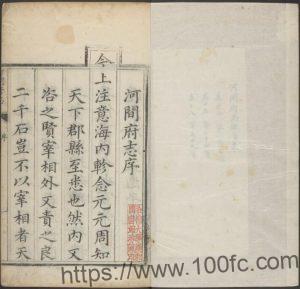 河間府志序
今
上注意海內軫念元元周知
天下郡縣至悉也然內又
咨之賢宰相外又責之良
二千石豈不以宰相者天
https://www.100fc.com